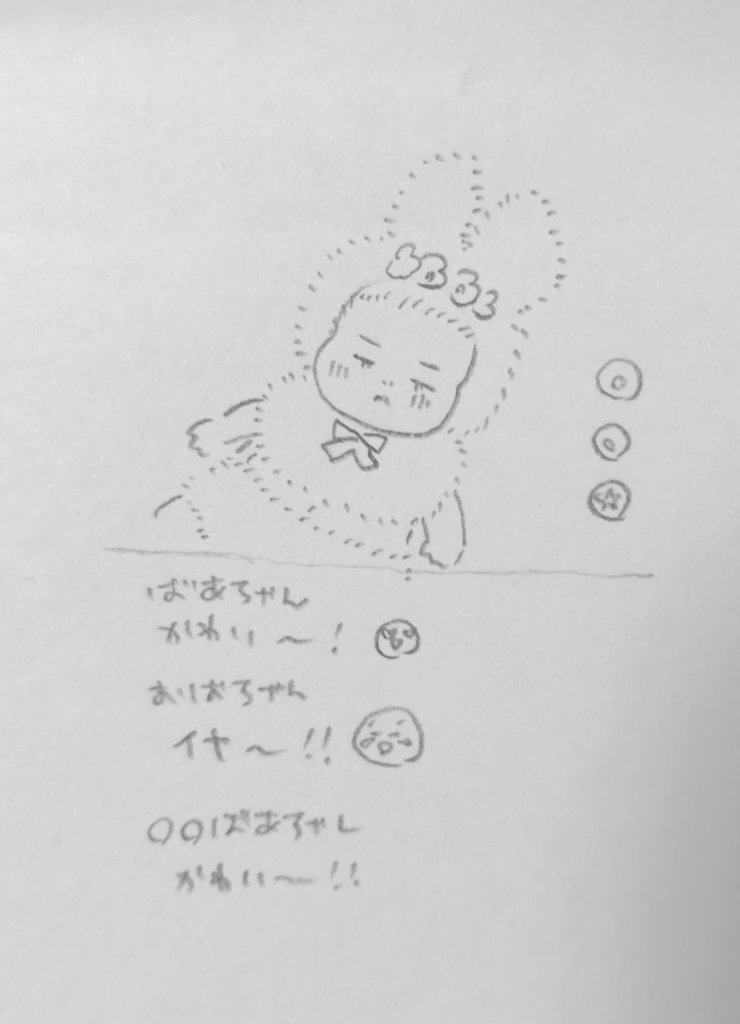 ばあちゃん
かわい〜!
おりおちゃん
イヤ〜!!
〇〇ばあちゃん
かわい〜!!